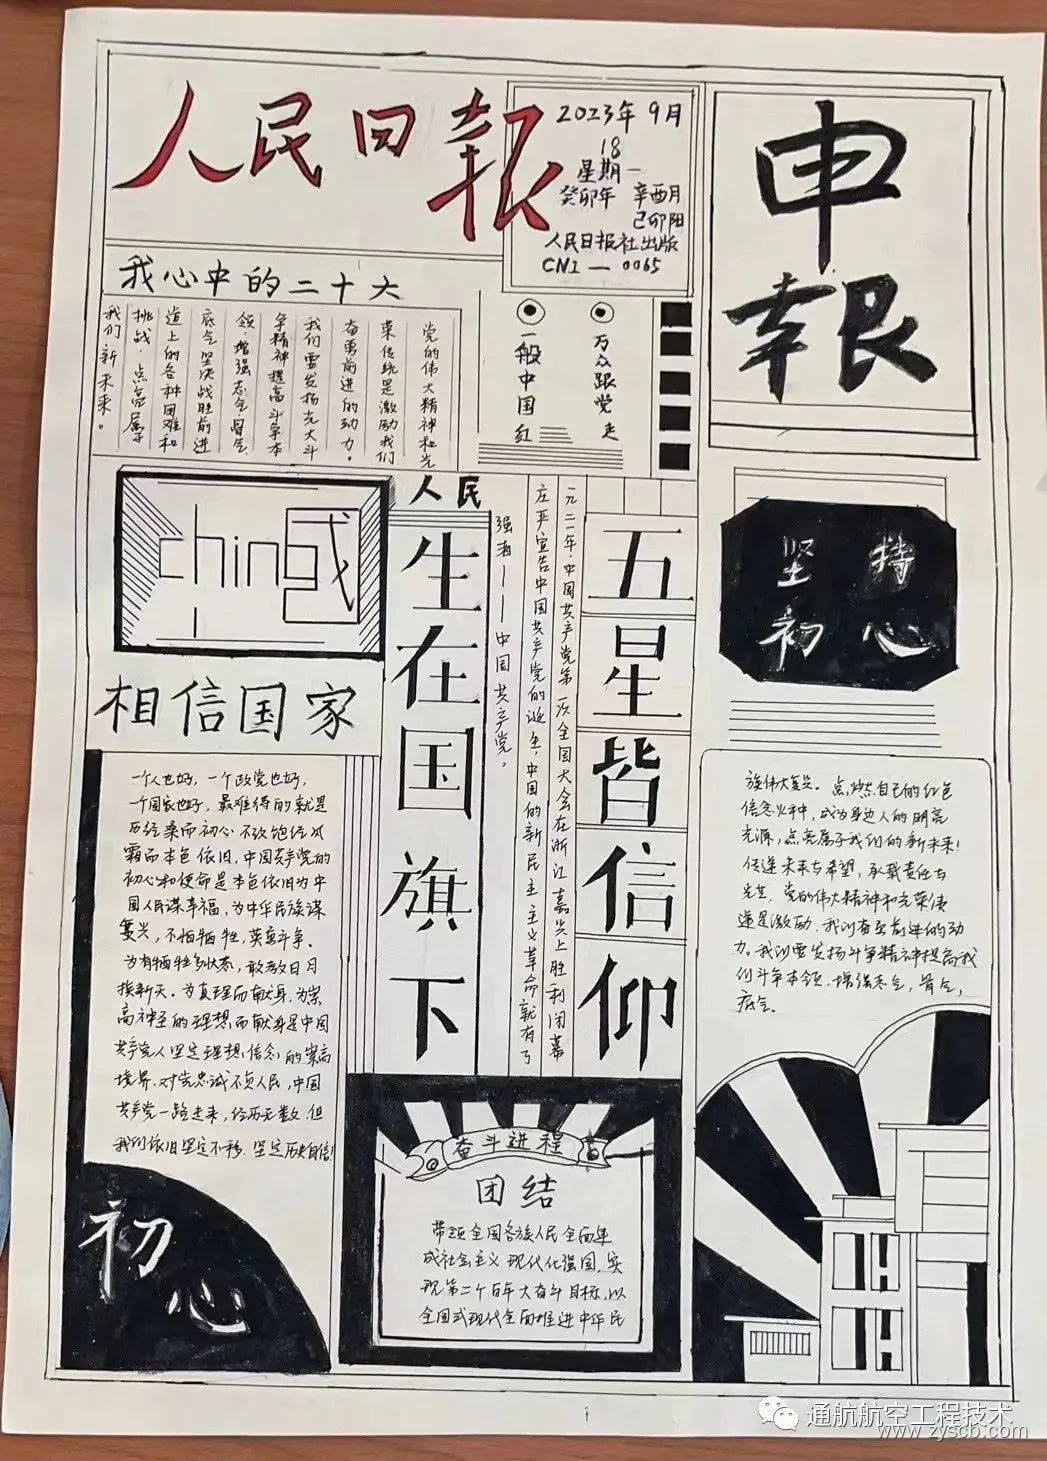 人民日報
2023年9月
18
星期一
癸卯年 辛酉月
己卯阳
人民日报社出版
CN1—0065
申
報
我心中的二十六
党的伟大精神和光
荣传统是激励我们
奋勇前进的动力。
我们需发扬光大斗
争精神提高斗争本
领,增强志气,骨气
底气坚决战胜前进
道上的各种困难和
挑战,点亮属于
我们新未来。
一般中国红
万众跟党走
china
相信国家
人民
生在国旗下
强者——中国共产党。
五星皆信仰
一九二一年,中国共产党第一次全国大会在浙江嘉兴上胜利闭幕
庄严宣告中国共产党的诞生,中国的新民主主义革命就有了
坚持
初心
一个人也好,一个政党也好,
一个国家也好,最难得的就是
历经桑而初心不改饱经风
霜而本色依旧,中国共产党的
初心和使命是本色依旧为中
国人民谋幸福,为中华民族谋
复兴,不怕牺牲,英勇斗争。
为有牺牲多状志,敢教日月
换新天。为真理而献身,为崇
高神圣的理想而献身是中国
共产党人坚定理想信念的崇高
境界,对党忠诚不负人民,中国
共产党一路走来,经历无数,但
我们依旧坚定不移,坚定历史自信!
初心
奋斗进程
团结
带领全国各族人民全面建
成社会主义现代化强国,实
现第二个百年大奋斗目标,以
全国式现代全面推进中华民
族伟大复兴。点燃自己的红色
信念火种,成为身边人的明亮
光源,点亮属于我们的新未来!
传递未来与希望,承载责任与
光芒,党的伟大精神和光荣传
递是激励,我们奋勇前进的动
力。我们需发扬斗争精神提高我
们斗争本领,增强志气,骨气,
底气。
通航航空工程技术
www.zyscb.com